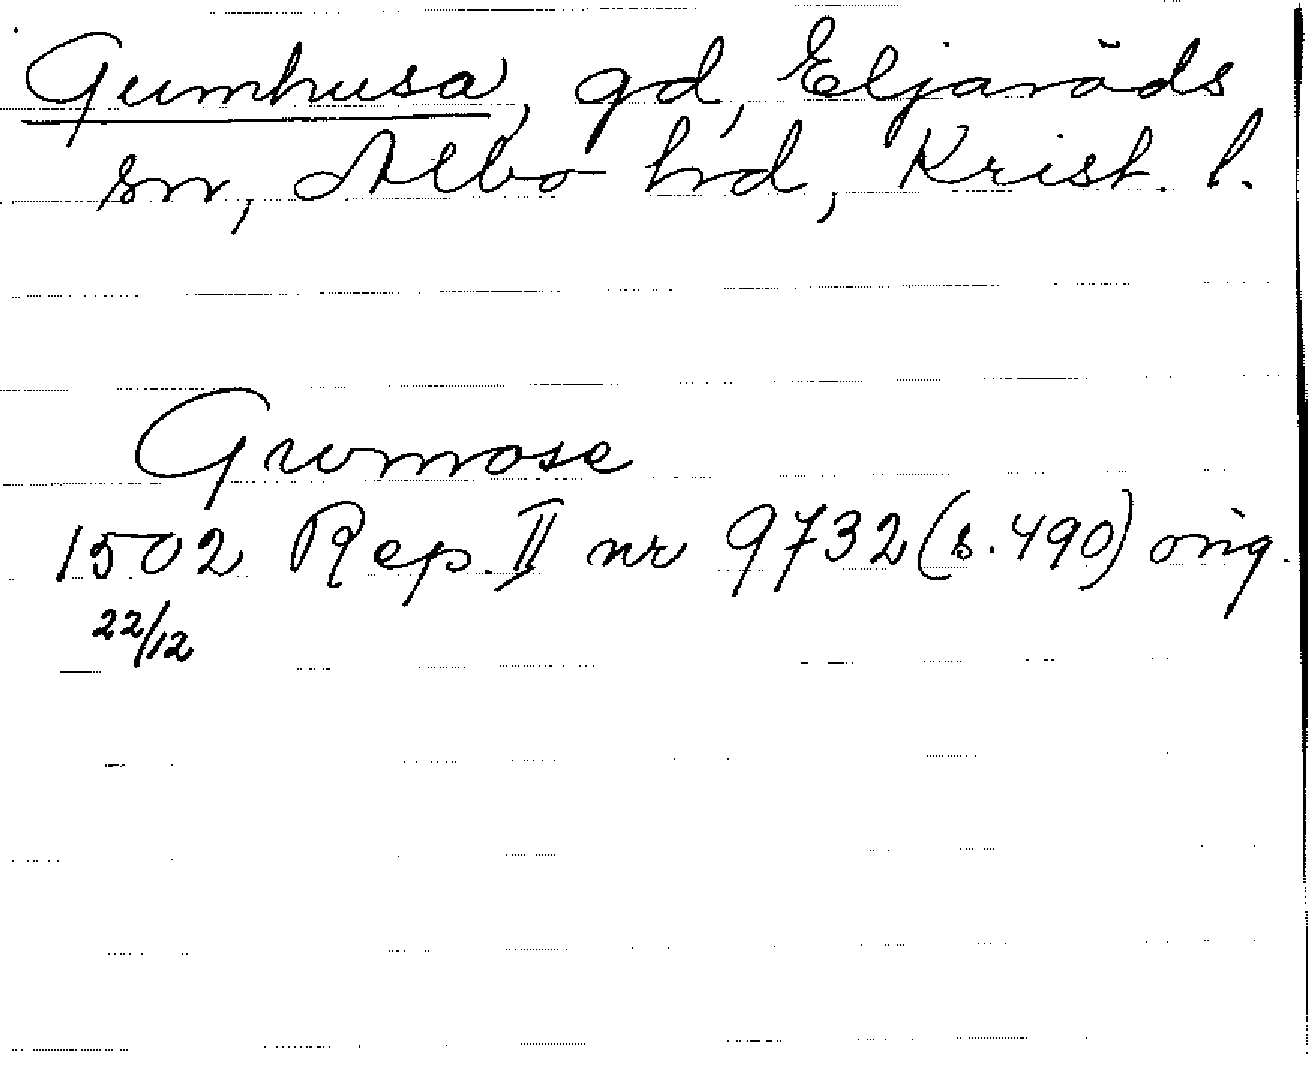 Gumhusa, gd, Eljaröds
sn, Albo hd, Krist. l.
Gromose
1502 Rep. II nr 9732 (s. 490) orig.
22/12